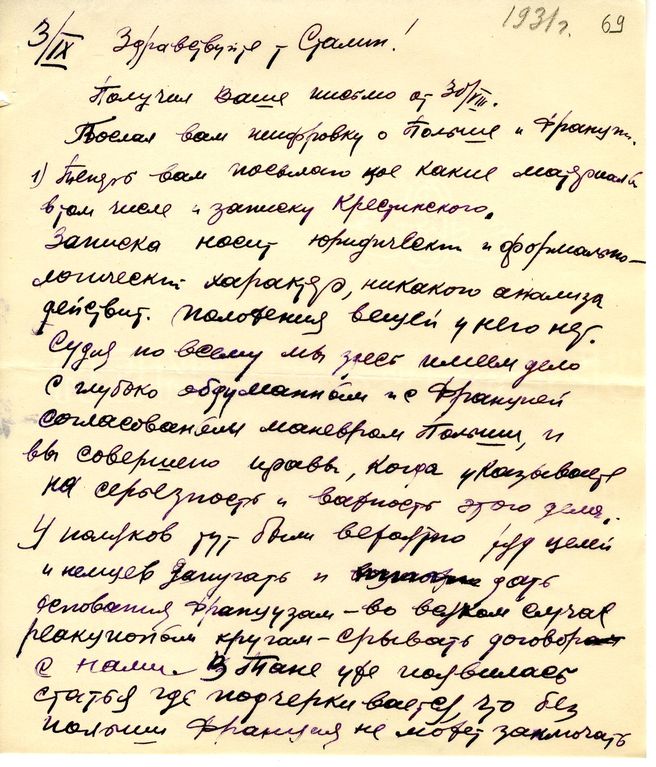 1931 г. 69
3/IX Здравствуйте т Сталин!
Получил Ваше письмо от 30/VIII.
Послал вам шифровку о Польше и Франции.
1) Теперь вам посылаю кое какие материалы
в том числе и записку Крестинского.
Записка носит юридически и формально-
логический характер, никакого анализа
действит. положения вещей у него нет.
Судя по всему мы здесь имеем дело
с глубоко обдуманном и с Францией
согласованном маневром Польши, и
вы совершено правы, когда указываете
на серьезность и важность этого дела.
У поляков тут были вероятно ряд целей
и немцев запугать и дать
основания французам – во всяком случае
реакционным кругам – срывать договор
с нами. В Тане уже появилась
статья где подчеркивается, что без
польши Франция не может заключать